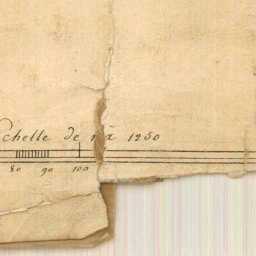 chelle de 1 à 1250
80 90 100